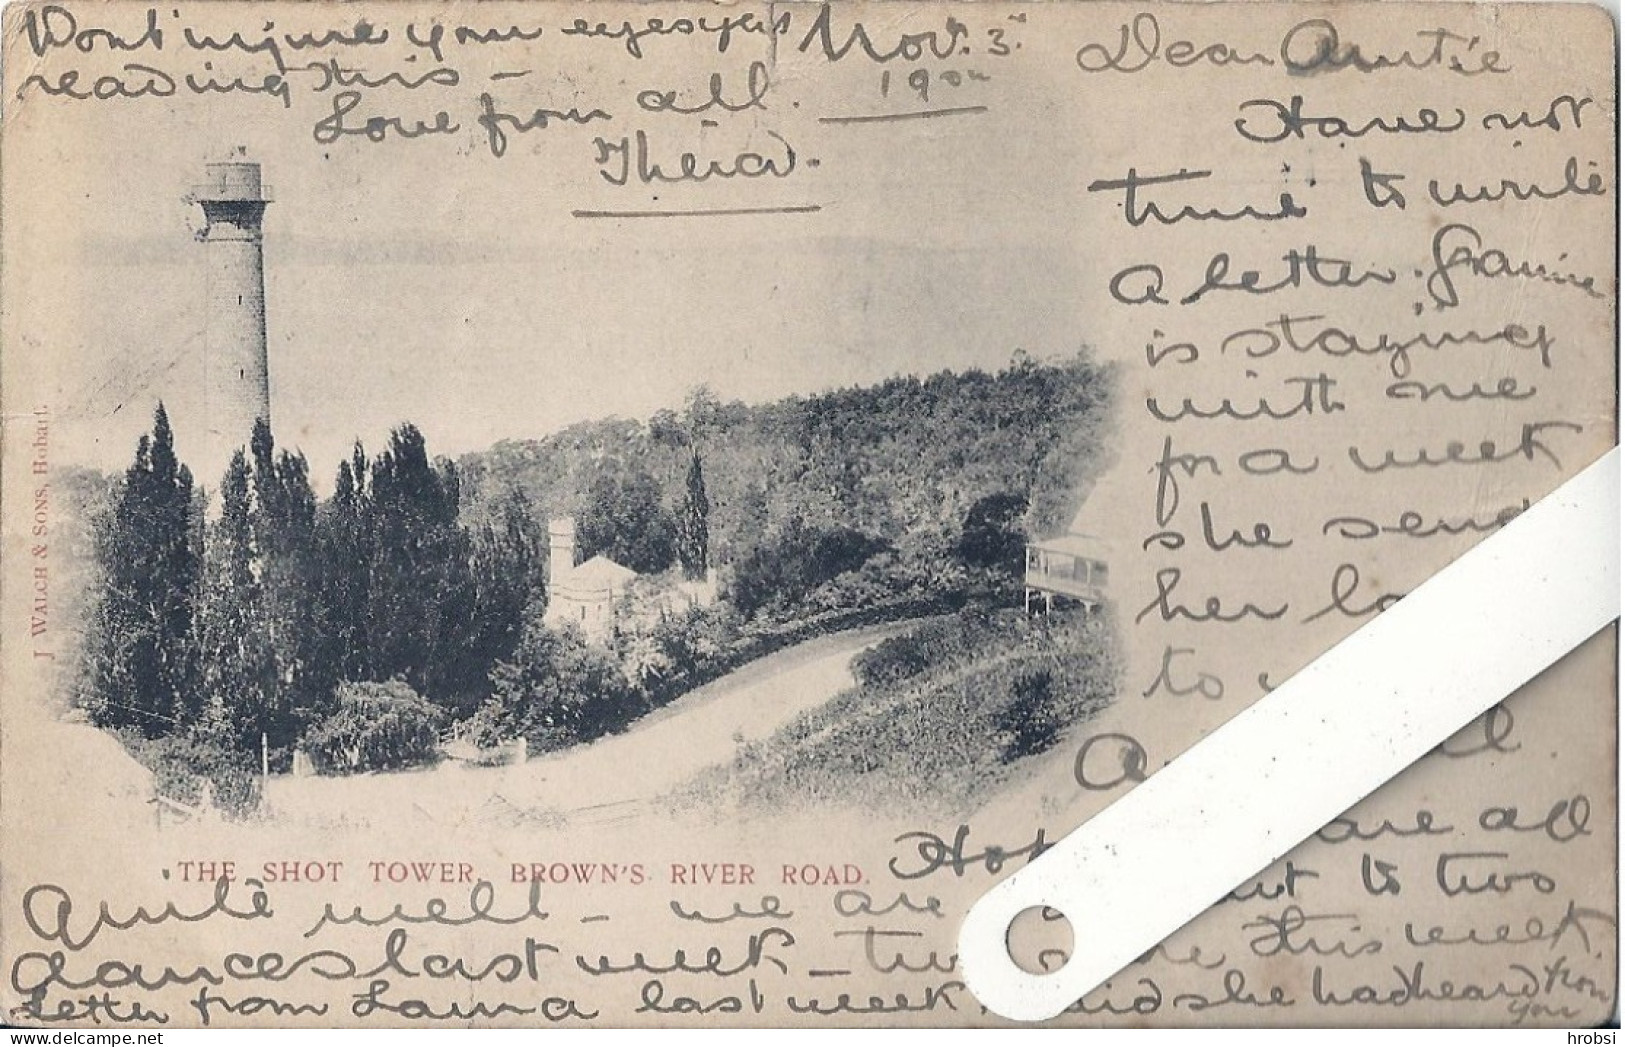 Dont injure your eyesight
reading this -
Love from all.
Nov. 3rd
190
Dear Auntie
Have not
time to write
a letter. Grannie
is staying
with me
for a week
she send
her lo
to
A
Ho are all
quite well - we are to two
dances last week - two this week.
Letter from Laura last week. said she had heard from
you
J WALCH & SONS, Hobart.
THE SHOT TOWER, BROWN'S RIVER ROAD.
hrobsi
www.delcampe.net